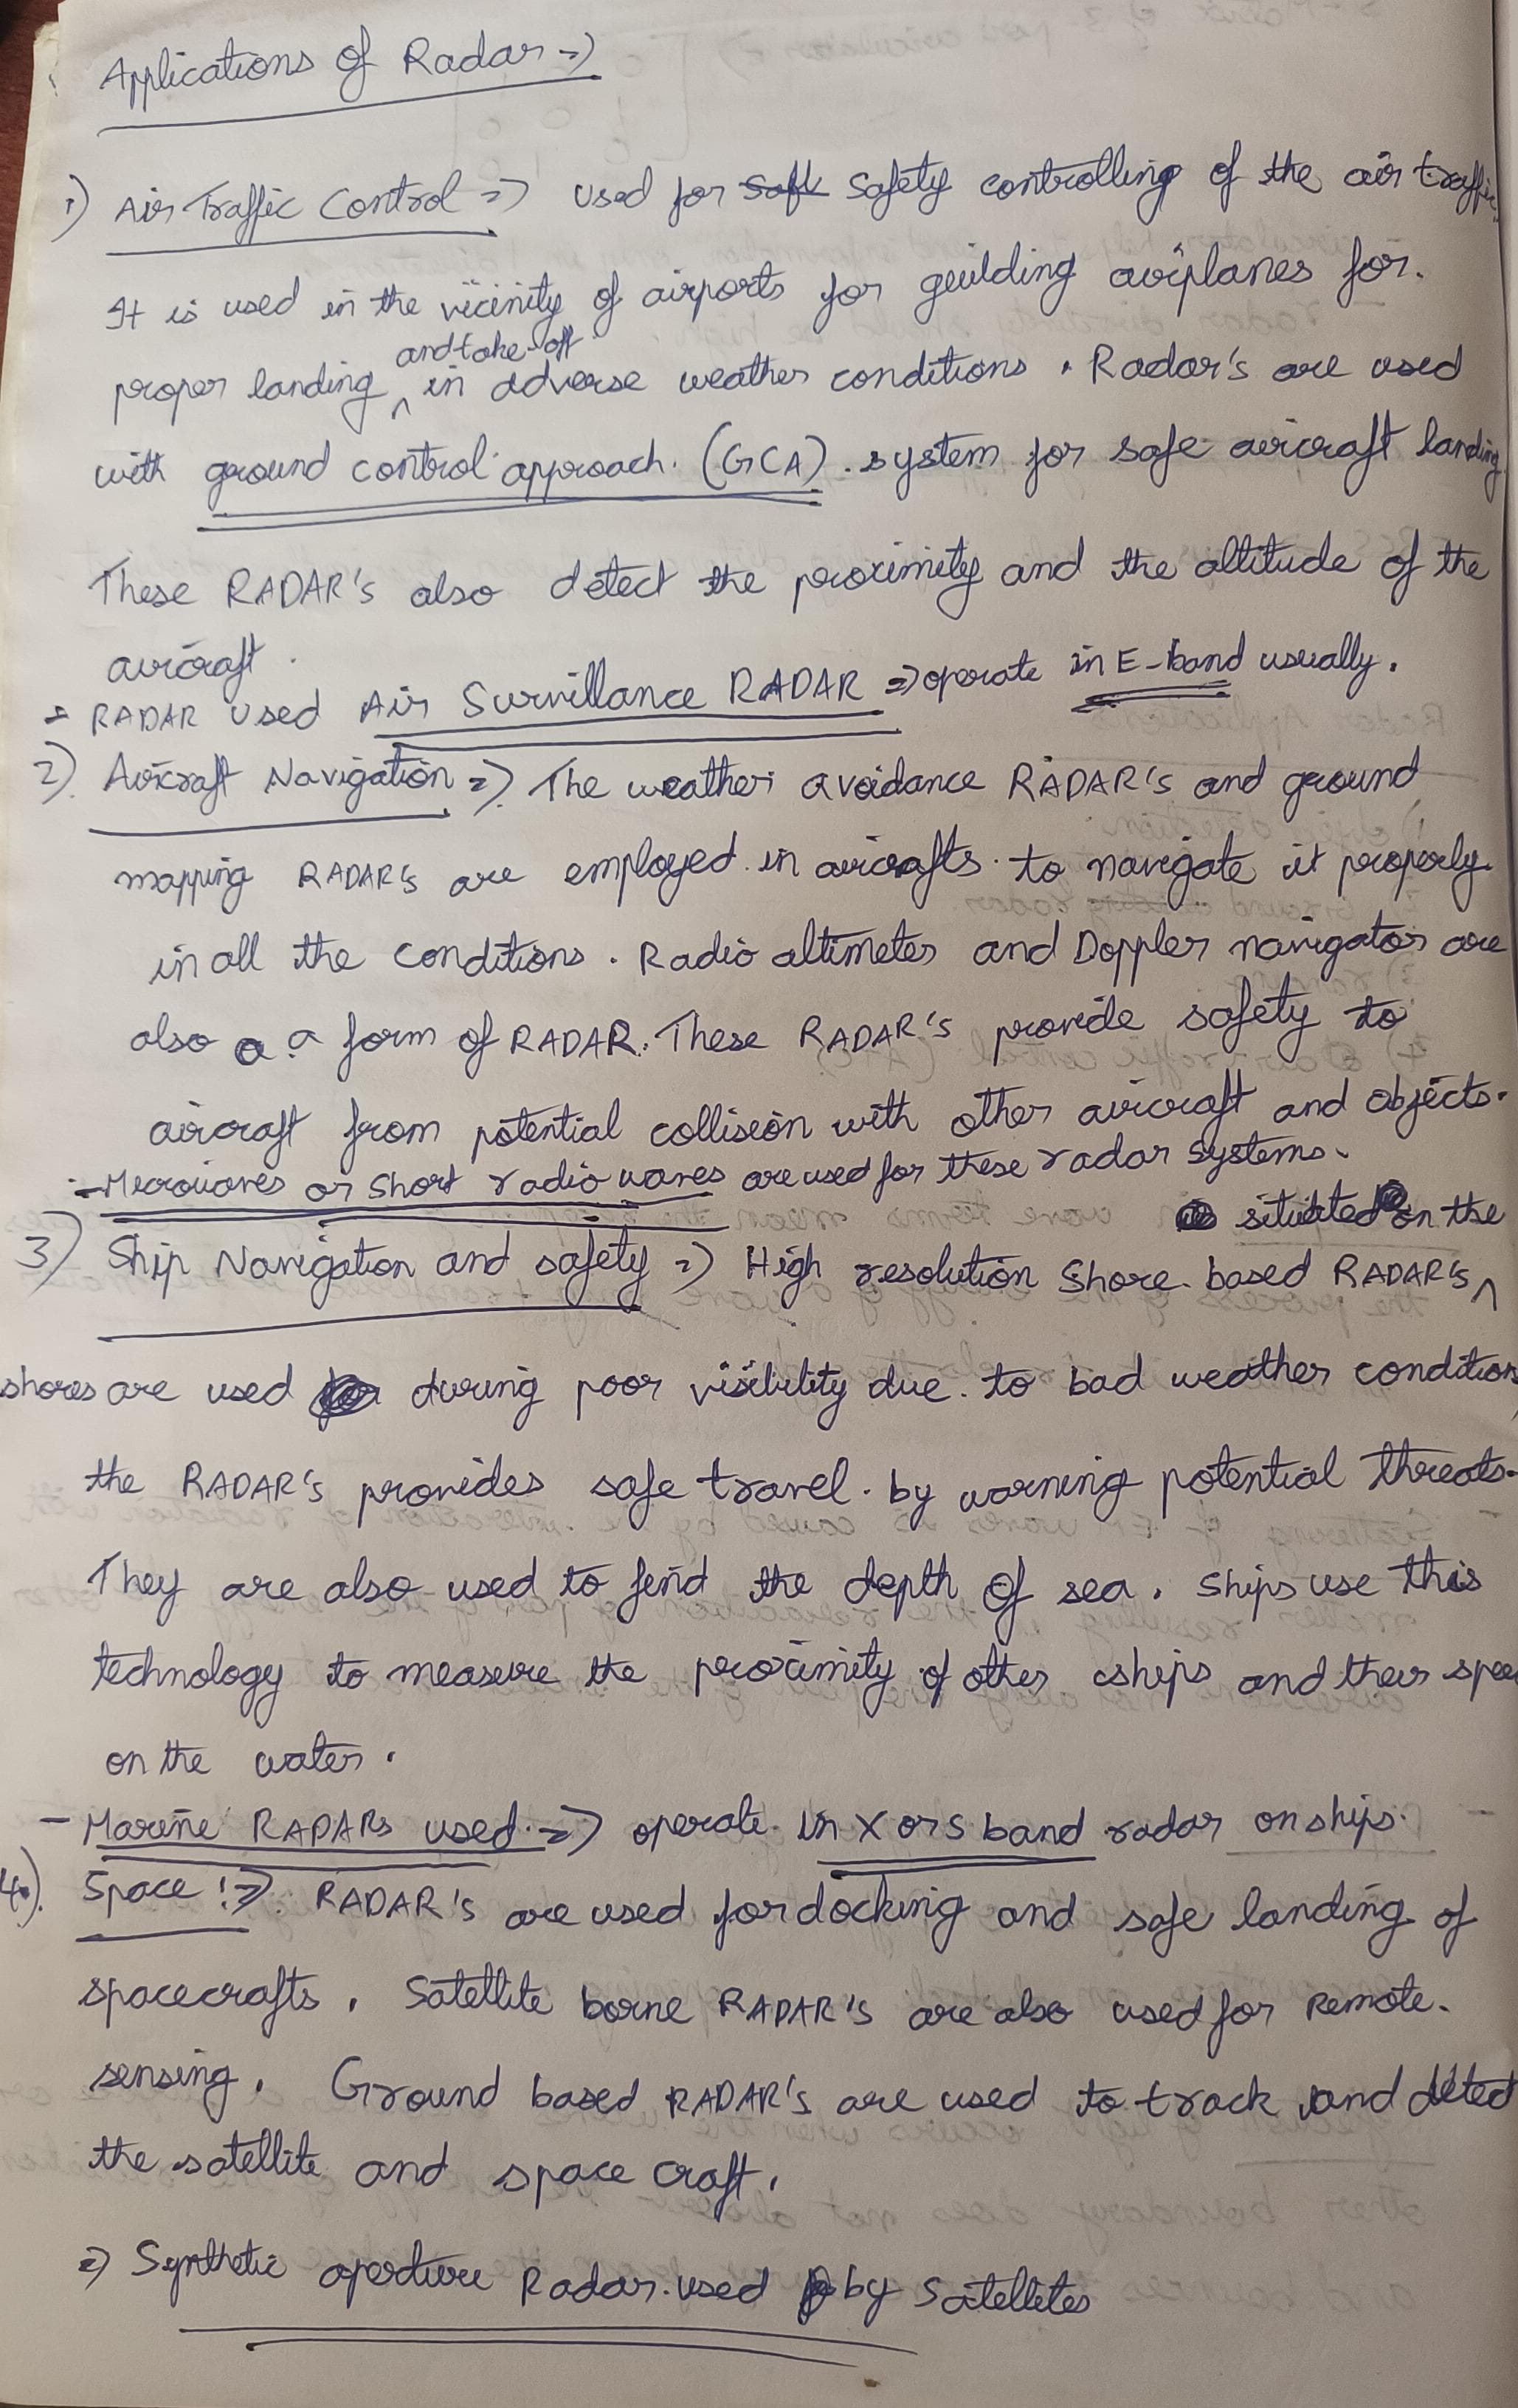 Applications of Radar =>
1) Air Traffic Control => used for safety controlling of the air traffic.
It is used in the vicinity of airports for guilding airplanes for.
and take-off
proper landing ^ in adverse weather conditions. Radar's are used
with ground control approach. (GCA). system for safe aircraft landing
These RADAR's also detect the proximity and the altitude of the
aircraft.
RADAR used Air Survillance RADAR => operate in E-band usually.
2) Aircraft Navigation => The weather avoidance RADAR's and ground
mapping RADAR's are employed in aircrafts. to navigate it properly
in all the conditions. Radio altimeter and Doppler navigator are
also a a form of RADAR. These RADAR's provide safety to
aircraft from potential collision with other aircraft and objects.
- Microwaves or Short radio waves are used for these radar systems.
situated on the
3) Ship Navigation and safety => High resolution Shore-based RADAR's ^
shores are used during poor visibility due to bad weather condition
the RADAR's provides safe travel. by warning potential threats.
They are also used to find the depth of sea. Ships use this
technology to measure the proximity of other ships and their spee
on the water.
- Marine RADARs used => operate in X or S band radar on ships.
4.) Space :=> RADAR's are used for docking and safe landing of
spacecrafts. Satellite borne RADAR's are also used for Remote.
sensing. Ground based RADAR's are used to track and detect
the satellite and space craft.
=> Synthetic aperture Radar. used by Satellites